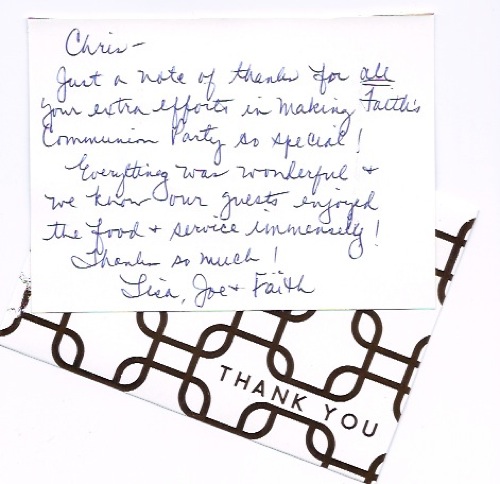 Chris-
Just a note of thanks for all
your extra efforts in making Faith's
Communion Party so special!
Everything was wonderful +
we know our guests enjoyed
the food + service immensely!
Thanks so much!
Lisa, Joe + Faith
THANK YOU